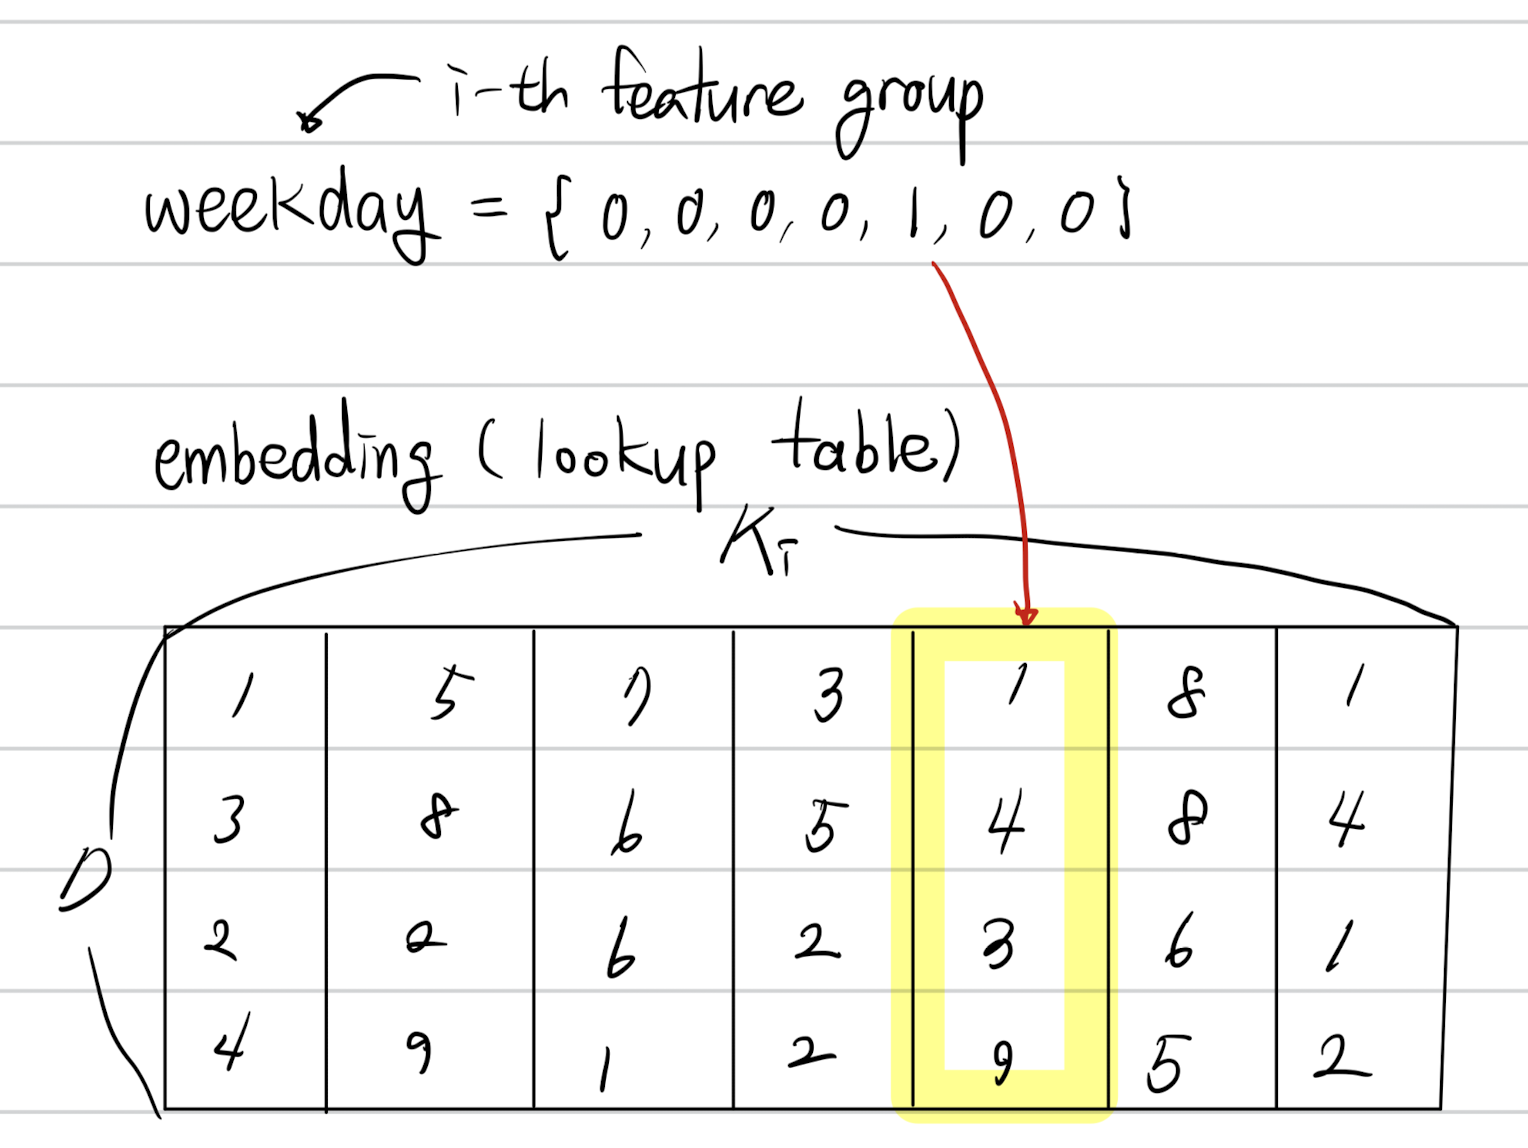 i-th feature group
weekday = { 0, 0, 0, 0, 1, 0, 0 }
embedding ( lookup table)
Ki
1 5 7 3 1 8 1
3 8 6 5 4 8 4
D
2 2 6 2 3 6 1
4 9 1 2 9 5 2